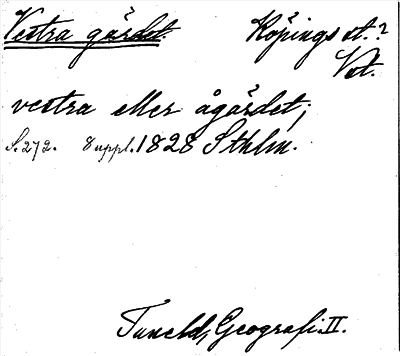 Vestra gärdet. Köpings st.?
Vst.
vestra eller ågärdet;
S. 272. 8 uppl. 1828 Sthlm.
Tuneld, Geografi. II.